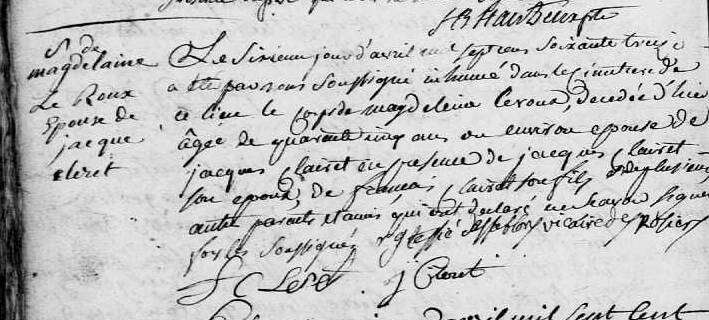 S. de
magdelaine
Le Roux
Epouse de
jacque
cleret
Le sixieme jour d'avril mil sept cens soixante treize
a été par nous soussigné inhumé dans le cimetiere de
ce lieu le corps de magdeleine Leroux, decedée d'hier
âgée de quarante cinq ans ou environ epouse de
jacques Clairet en presence de jacques Clairet
son epoux, de françois Clairet son fils et de plusieurs
autre parents et amis qui ont declaré ne sçavoir signer
fors les soussignés vicaire de
j Cleret
mil sept cent